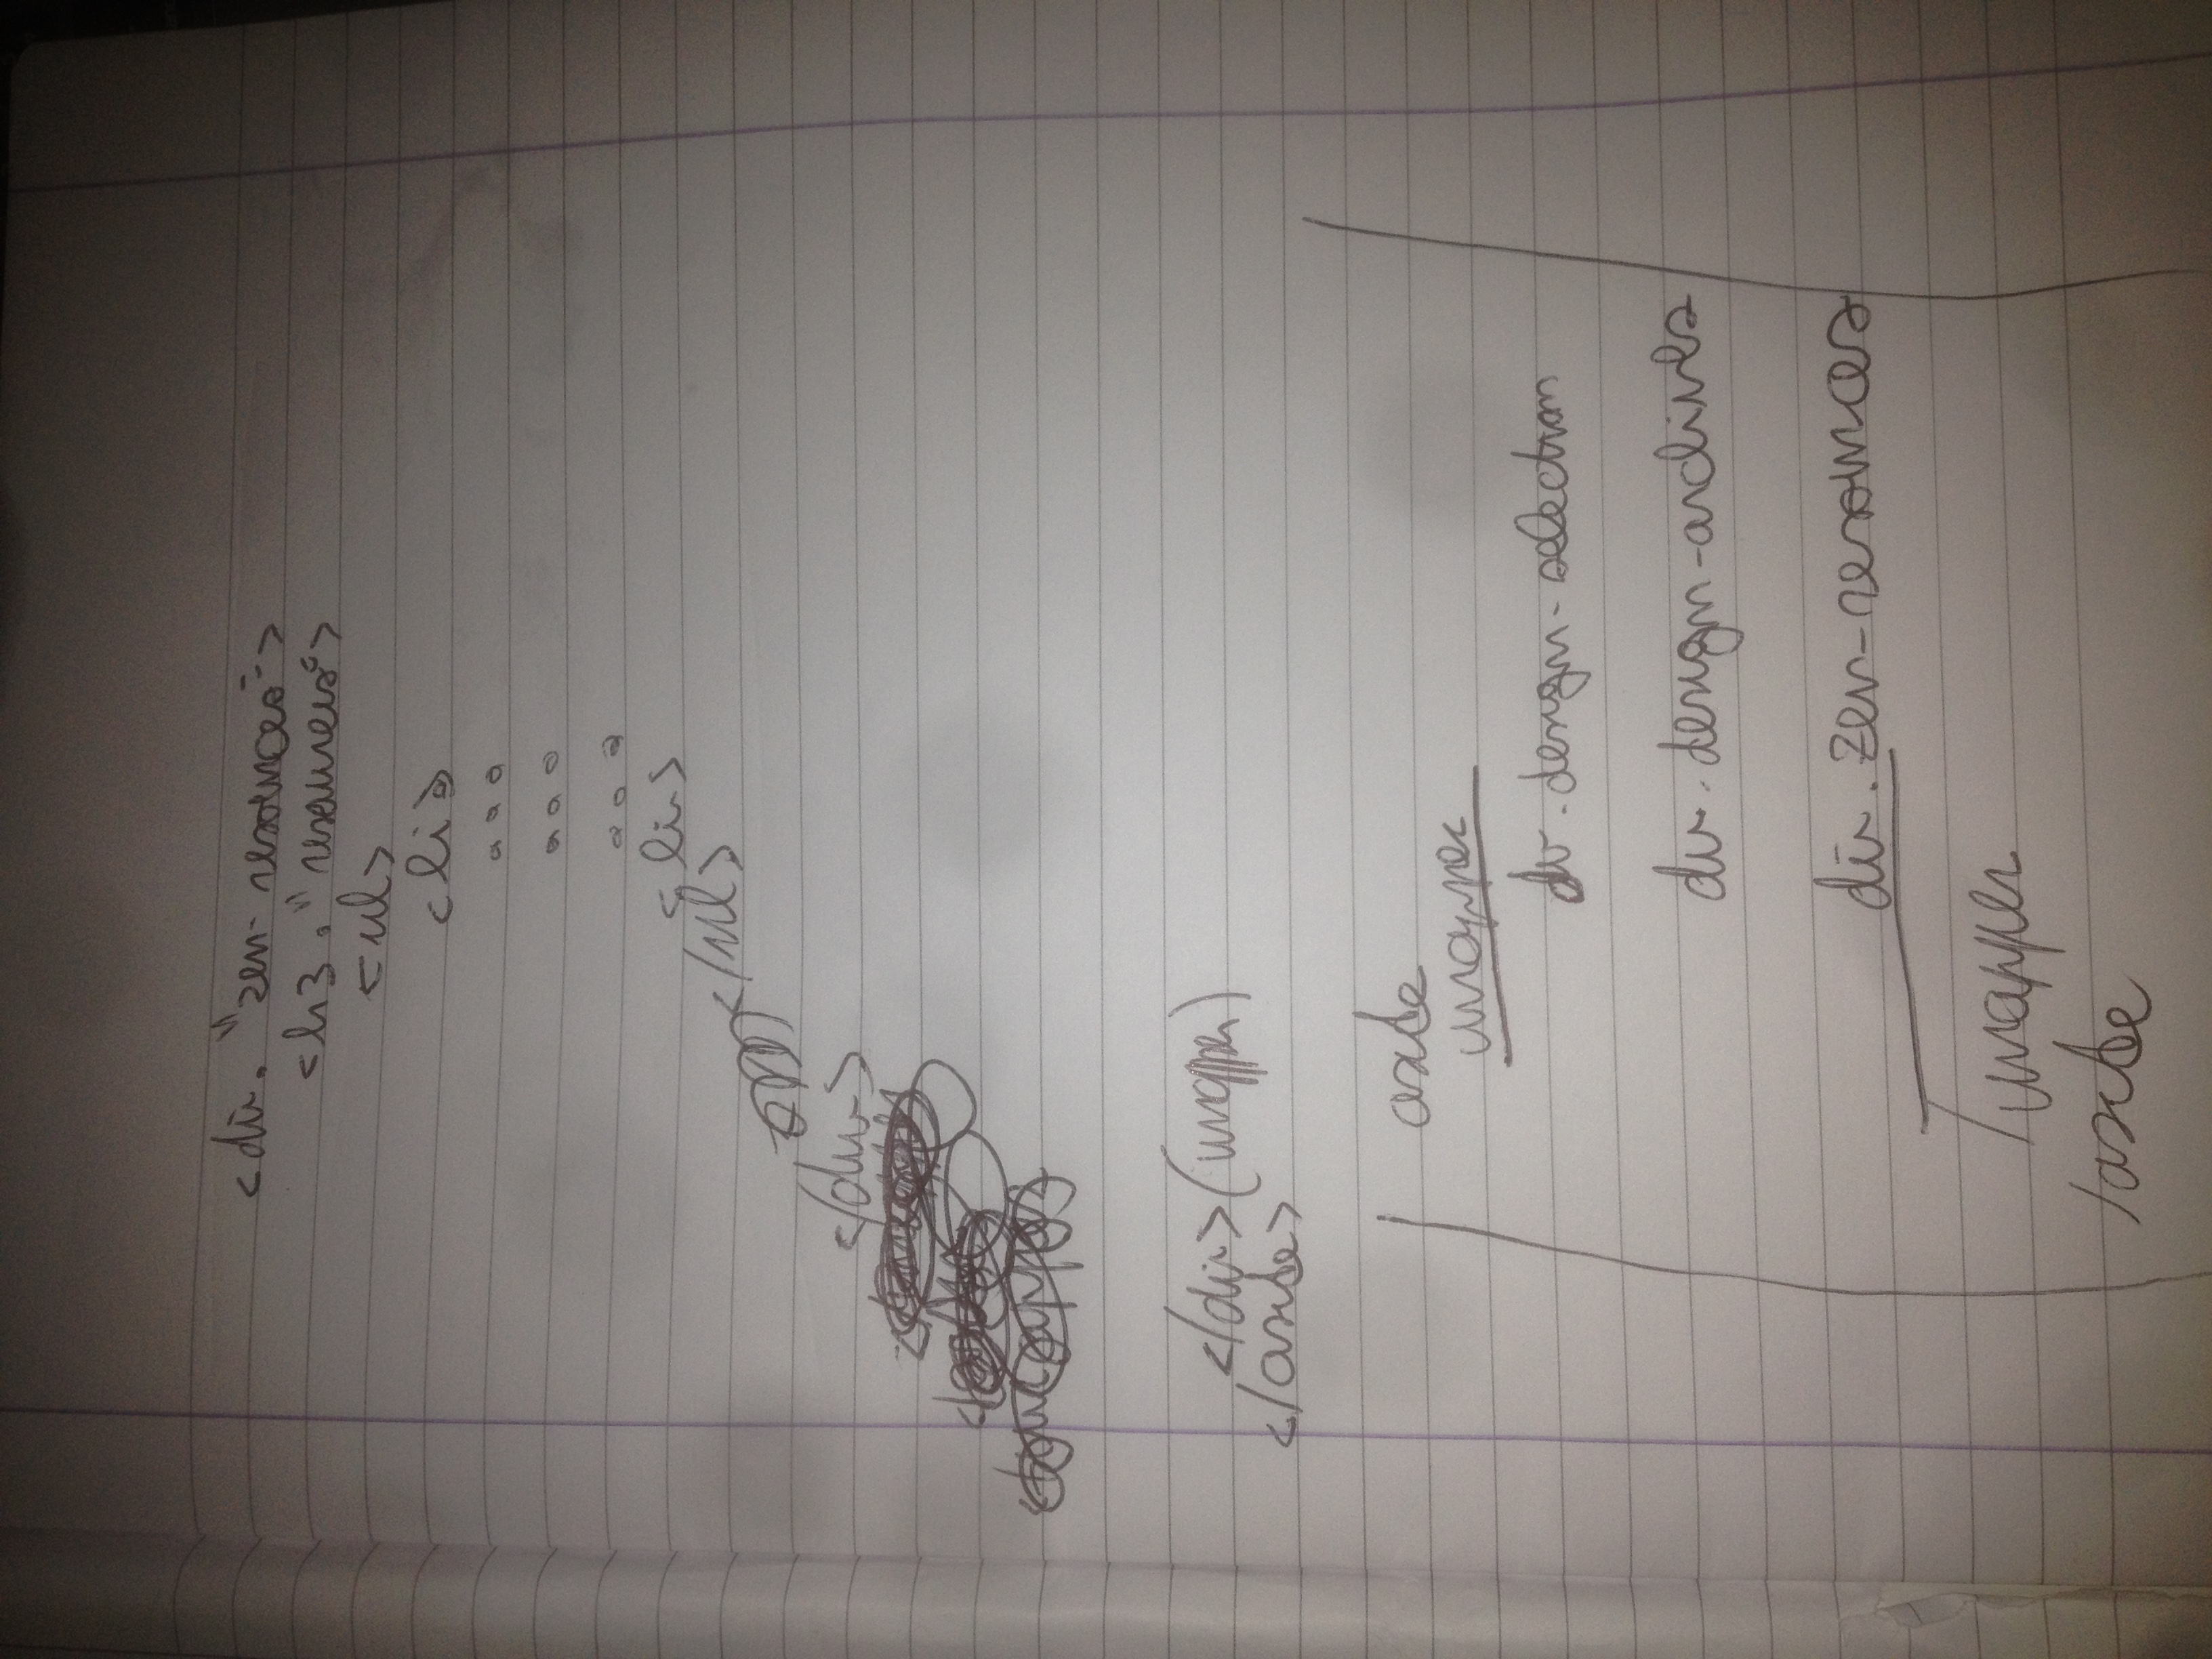 <div. "zen-resources">
<h3. "resources">
<ul>
<li>
...
...
...
<li>
</ul>
</div>
</div> (wrapper)
</aside>
aside
wrapper
div.design-selection
div.design-archives
div.zen-resources
/wrapper
/aside